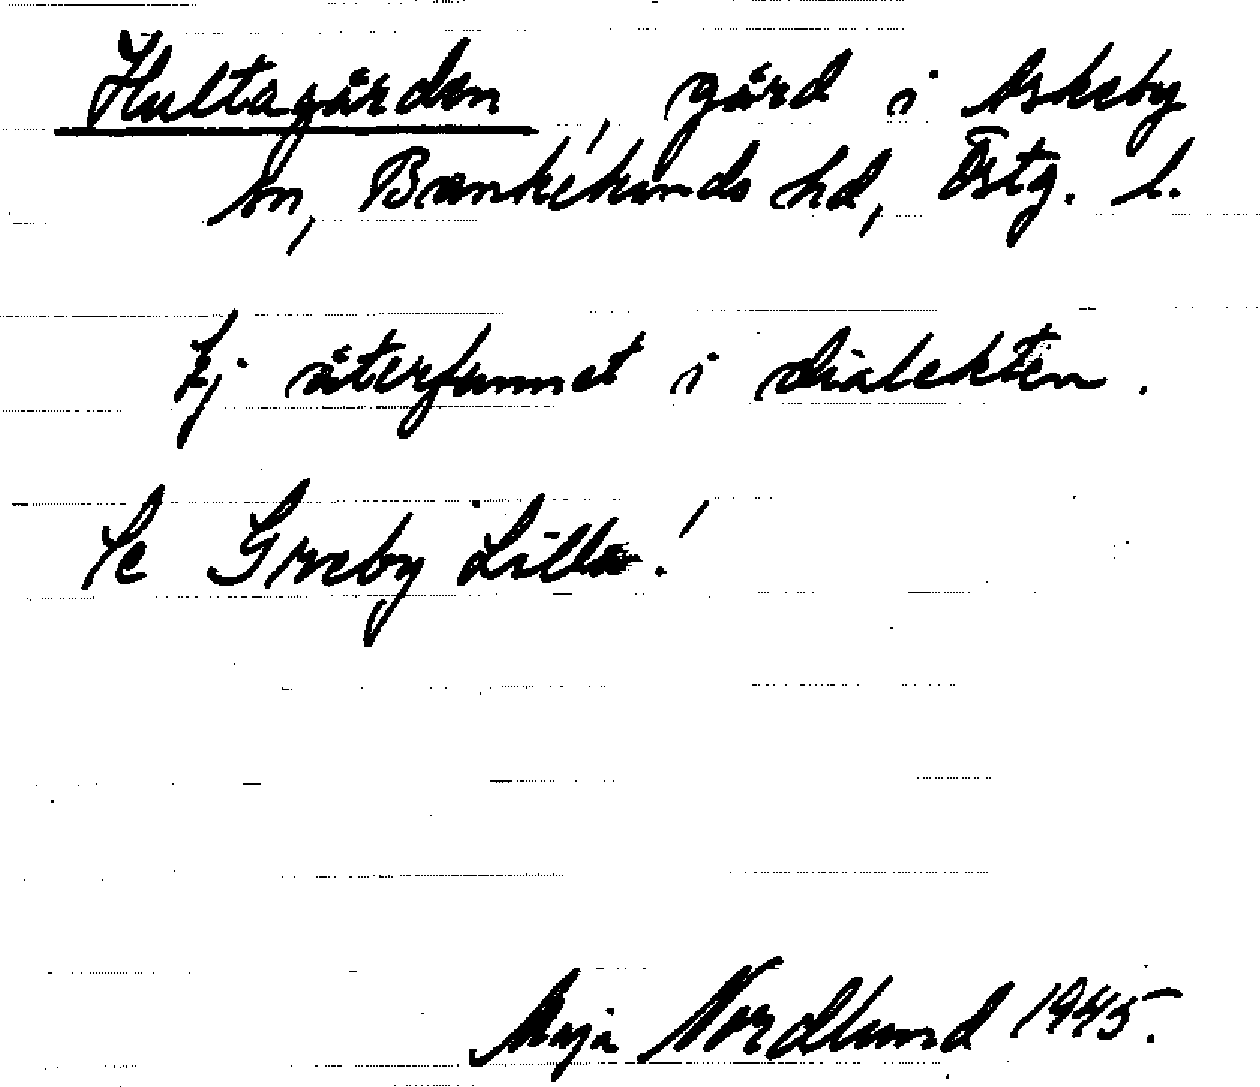 Hultagården, gård i Askeby
sn, Bankekinds hd, Östg. l.
Ej återfunnet i dialekten.
Se Greby Lilla!
Maja Nordlund 1945.